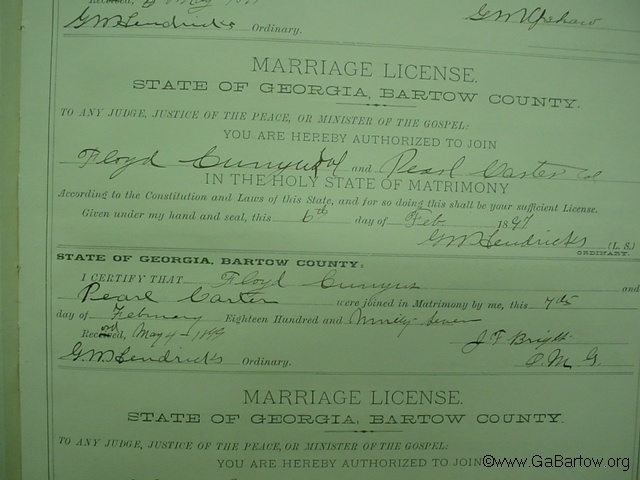 G W Hendricks Ordinary. G M Upshaw
MARRIAGE LICENSE.
STATE OF GEORGIA, BARTOW COUNTY.
TO ANY JUDGE, JUSTICE OF THE PEACE, OR MINISTER OF THE GOSPEL:
YOU ARE HEREBY AUTHORIZED TO JOIN
Floyd Cunyus Col and Pearl Carter Col
IN THE HOLY STATE OF MATRIMONY
According to the Constitution and Laws of this State, and for so doing this shall be your sufficient License.
Given under my hand and seal, this 6th day of Feb 1897
G W Hendricks (L. S.)
ORDINARY.
STATE OF GEORGIA, BARTOW COUNTY:
I CERTIFY THAT Floyd Cunyus and
Pearl Carter were joined in Matrimony by me, this 7th
day of February Eighteen Hundred and Ninety Seven
Recorded, May 4 - 1899 J F Bright
G W Hendricks Ordinary. P. M. G.
MARRIAGE LICENSE.
STATE OF GEORGIA, BARTOW COUNTY.
TO ANY JUDGE, JUSTICE OF THE PEACE, OR MINISTER OF THE GOSPEL:
YOU ARE HEREBY AUTHORIZED TO JOIN
©www.GaBartow.org